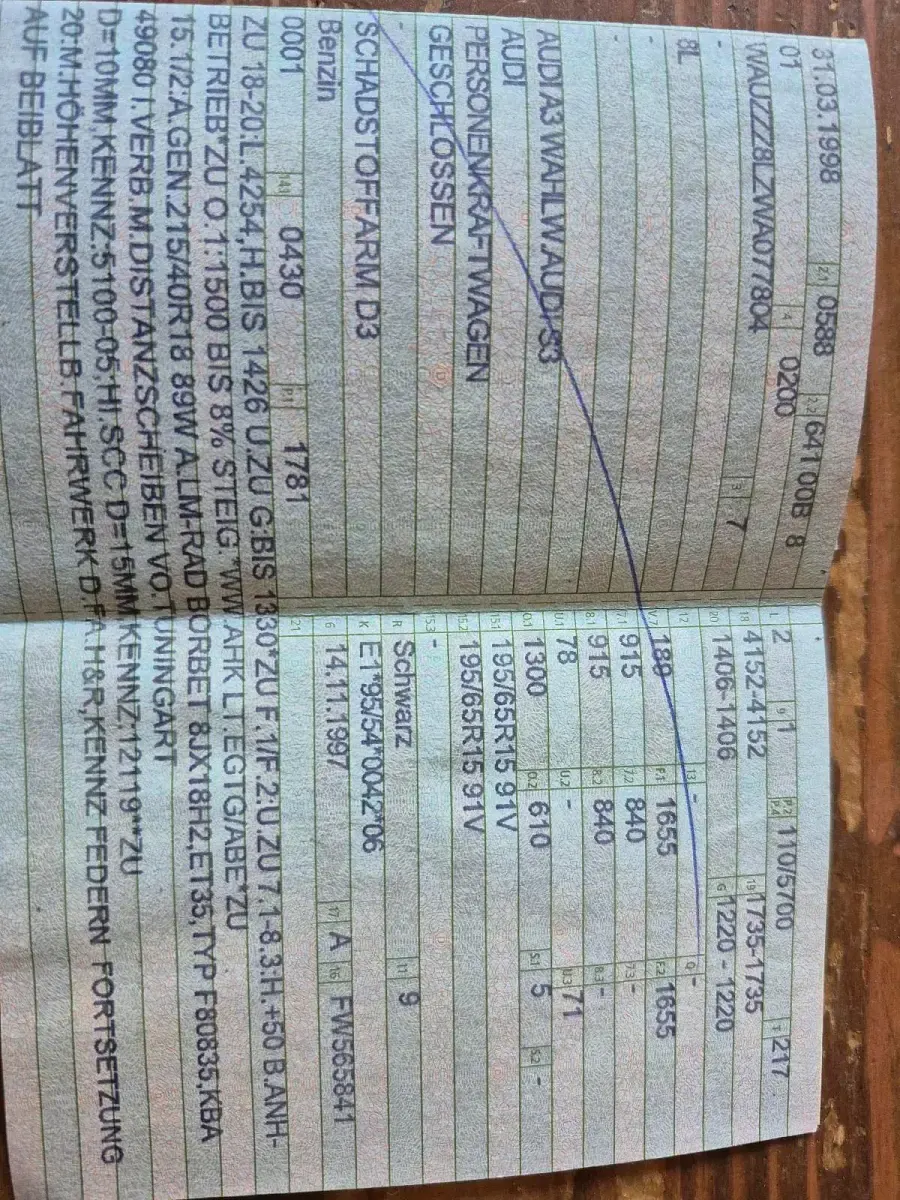 31.03.1998 2.1 0588 2.2 64100B 8
01 4 0200
WAUZZZ8LZWA077804 3 7
-
8L
-
-
AUDI A3 WAHLW.AUDI S3
AUDI
PERSONENKRAFTWAGEN
GESCHLOSSEN
-
SCHADSTOFFARM D3
Benzin
0001 14.1 0430 P.1 1781
L 2 9 1 P.2 P.4 110/5700 T 217
18 4152-4152 19 1735-1735
20 1406-1406 G 1220 - 1220
12 13 - Q -
V.7 189 F.1 1655 F.2 1655
7.1 915 7.2 840 7.3 -
8.1 915 8.2 840 8.3 -
U.1 78 U.2 - U.3 71
O.1 1300 O.2 610 S.1 5 S.2 -
15.1 195/65R15 91V
15.2 195/65R15 91V
15.3 -
R Schwarz 11 9
K E1*95/54*0042*06
6 14.11.1997 17 A 16 FW565841
21
ZU 18-20:L.4254,H.BIS 1426 U.ZU G:BIS 1330*ZU F.1/F.2:U.ZU 7.1-8.3:H.+50 B.ANH-
BETRIEB*ZU O.1:1500 BIS 8% STEIG.*WW.AHK LT.EGTG/ABE*ZU
15.1/2:A.GEN.215/40R18 89W A.LM-RAD BORBET 8JX18H2,ET35,TYP F80835,KBA
49080 I.VERB.M.DISTANZSCHEIBEN VO.TUNINGART
D=10MM,KENNZ:5100-05;HI.SCC D=15MM,KENNZ:12119**ZU
20:M.HÖHENVERSTELLB.FAHRWERK D.FA.H&R,KENNZ FEDERN FORTSETZUNG
AUF BEIBLATT